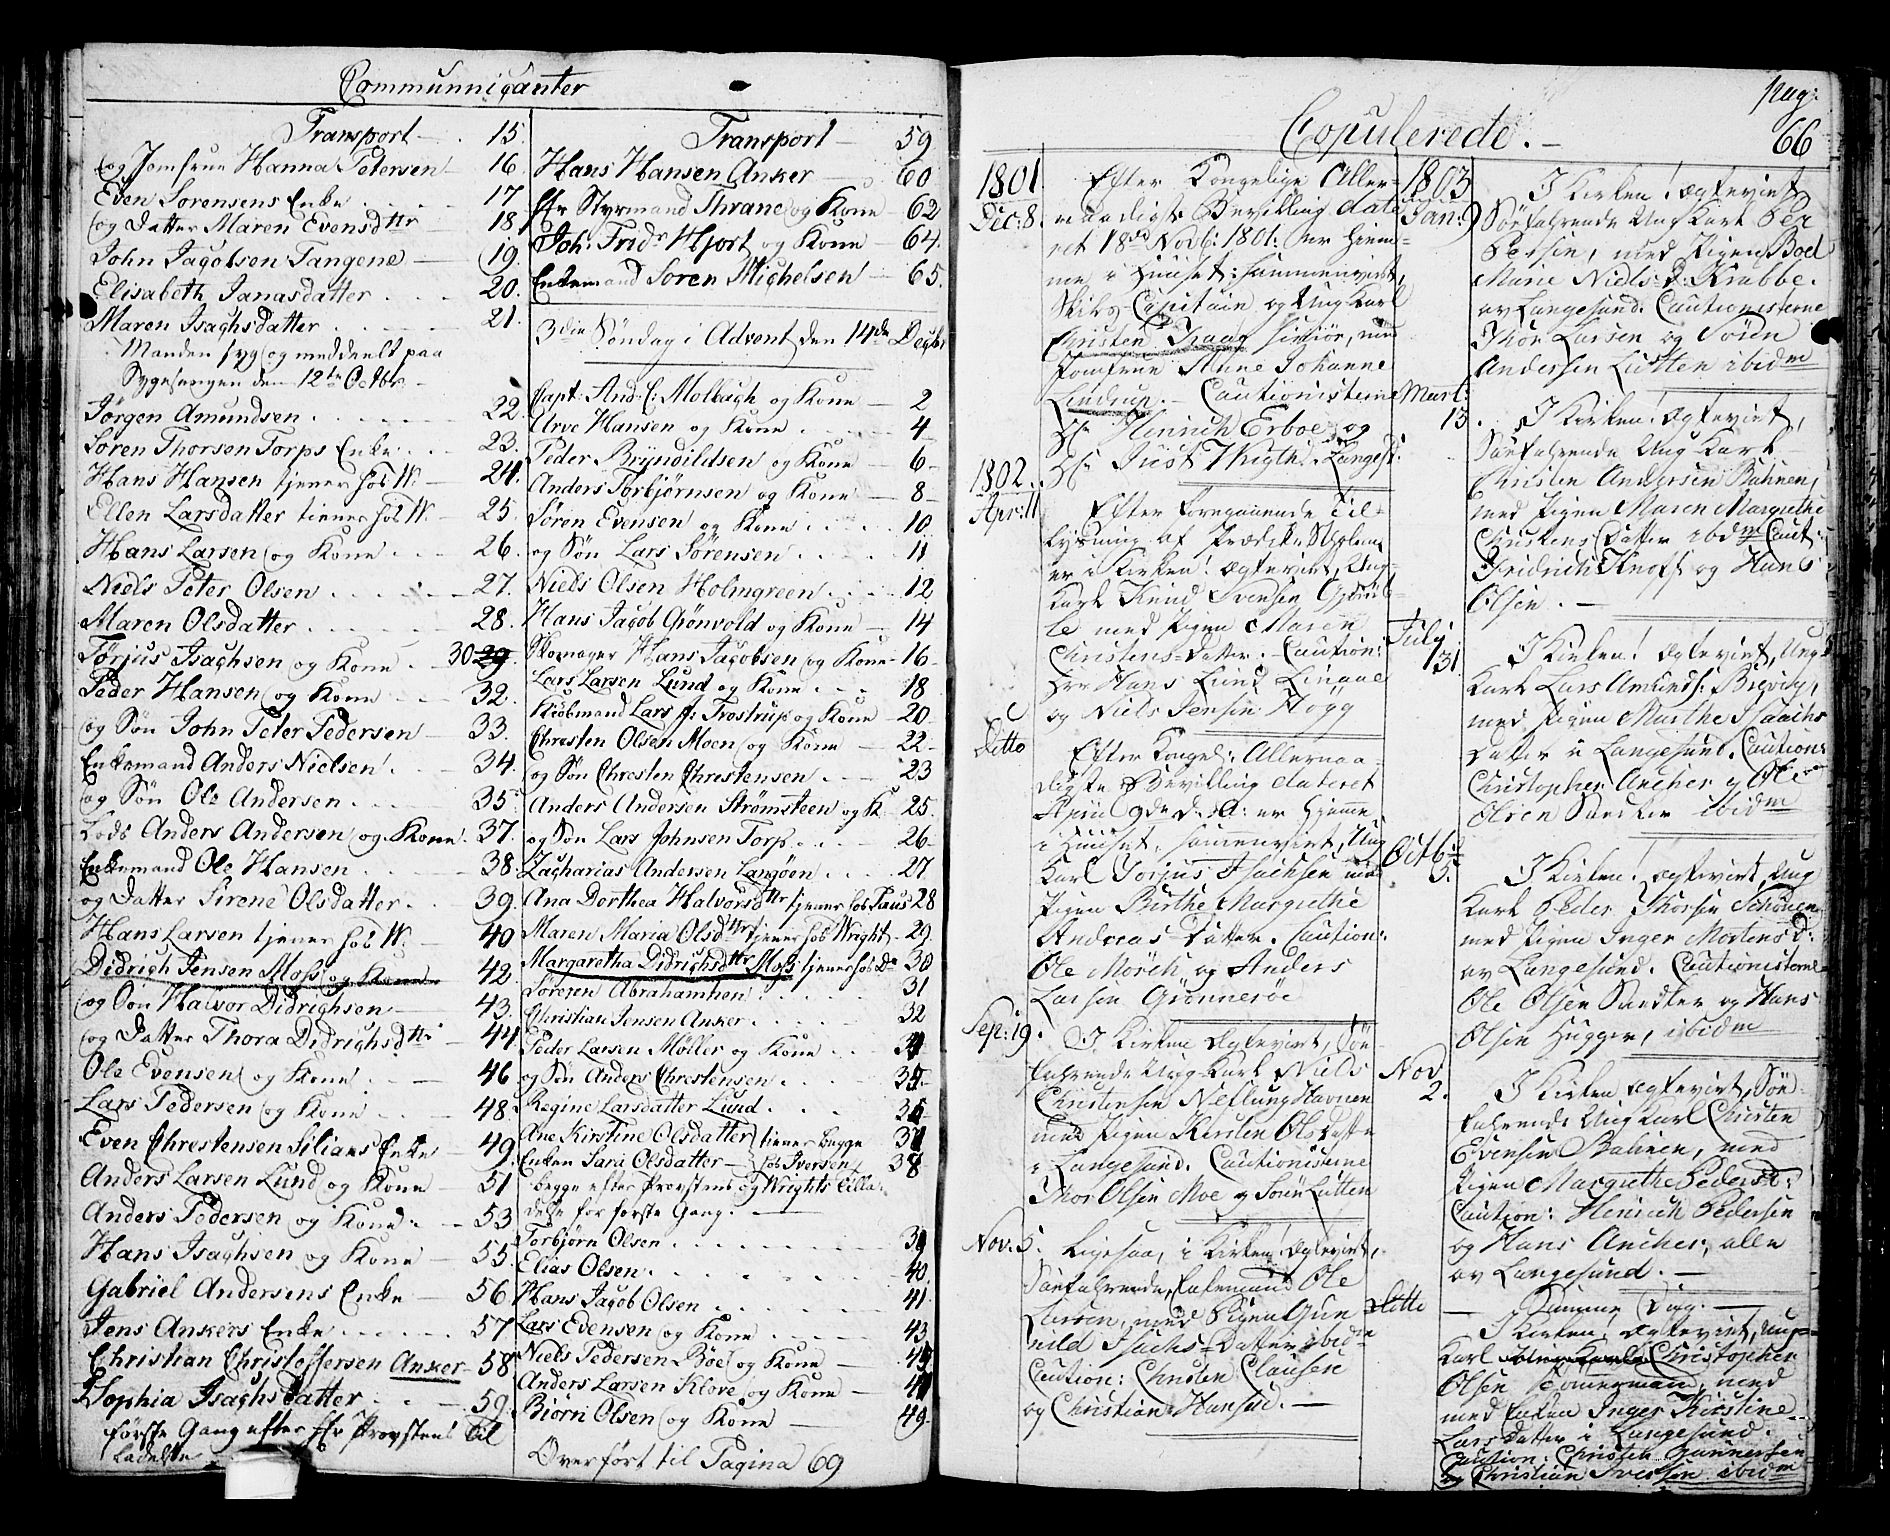 Communnicanter
Transport 15.
og Jomfrue Hanna Petersen 16
Even Sørensens Enke 17
og Datter Maren Evensdttr 18.
John Jacobsen Tangene 19.
Elisabeth Janasdatter 20.
Maren Isachsdatter 21.
Manden syg og meddeelt paa
Sygesengen den 12te Octbr.
Jørgen Amundsen 22
Søren Thorsen Torps Enke 23.
Hans Hansen tjener hos W. 24.
Ellen Larsdatter tiener hos W. 25.
Hans Larsen og Kone 26.
Niels Peter Olsen 27.
Maren Olsdatter 28.
Tørjus Isachsen og Kone 30 29.
Peder Hansen og Kone 32.
og Søn John Peter Pedersen 33.
Enkemand Anders Nielsen 34.
og Søn Ole Andersen 35.
Lods Anders Andersen og Kone 37.
Enkemand Ole Hansen 38.
og Datter Sirene Olsdatter 39.
Hans Larsen tjener hos W. 40
Didrich Jensen Moss og Kone 42.
og Søn Halvor Didrichsen 43.
og Datter Thora Didrichsdttr 44.
Ole Evensen og Kone 46
Lars Pedersen og Kone 48.
Even Chrestensen Silians Enke 49.
Anders Larsen Lund og Kone 51
Anders Pedersen og Kone 53
Hans Isachsen og Kone 55.
Gabriel Andersens Enke 56
Jens Ankers Enke 57
Christian Christoffersen Anker 58
Sophia Isachsdatter 59.
første Gang efter Hr Provstens Til
ladelse
Transport 59
Hans Hansen Anker 60
Hr Styrmand Thrane og Kone 62
Joh: Fridr Hjort og Kone 64.
Enkemand Søren Michelsen 65.
3die Søndag i Advent den 14de Decbr
Capt: And: C: Molbach og Kone 2
Arve Hansen og Kone 4
Peder Brynildsen og Kone 6
Anders Torbjørnsen og Kone 8
Søren Evensen og Kone 10
og Søn Lars Sørensen 11
Niels Olsen Holmgreen 12
Hans Jacob Grönvold og Kone 14
Skomager Hans Jacobsen og Kone 16
Lars Larsen Lund og Kone 18
Kiøbmand Lars J: Trostrup og Kone 20
Chresten Olsen Moen og Kone 22
og Søn Chresten Chrestensen 23
Anders Andersen Strømsteen og K 25.
og Søn Lars Johnsen Torp 26
Zacharias Andersen Langöen 27
Ana Dorthea Halvorsdttr tjener hos Paus 28
Maren Maria Olsdttr tjener hos Wright 29.
Margaretha Didrichsdttr Moss tjener hos Do 30
Sørren Abrahamsen 31
Christian Jensen Anker 32
Peder Larsen Møller og Kone 34
og Søn Anders Chrestensen 35
Regine Larsdatter Lund 36
Ane Kirstine Olsdatter tiener begge 37
Enken Sara Olsdatter hos Iversen 38
begge efter Provstens og Wrights Tilla
delse for første Gang.
Torbjørn Olsen 39
Elias Olsen 40
Hans Jacob Olsen 41.
Lars Evensen og Kone 43
Niels Pedersen Böe og Kone 45
Anders Larsen Klove og Kone 47
Biørn Olsen og Kone 49.
Overført til Pagina 69
Pag:
66
Copulerede.
1801.
Dec: 8.
Efter Kongelige Aller-
naadigste Bevilling date
ret 18de Novb: 1801. er hiem-
me i Huuset sammenviet,
Skibs-Capitain og Ung Karl
Christen Isaac, med
Jomfrue Anne Johanne
Lindrup. Cautionisterne
Hr Hinrich Erboe og
Hr Just Wrigth. Langes:
1802.
Apr: 11
Efter foregaaende Til-
lysning af Prædik: Stolen
er i Kirken Egteviet, Ung-
Karl Knud Svensen
med Pigen Maren
Christens-Datter. Caution:
Hr Hans Lund Linaae
og Niels Jensen Høgg
Ditto
Efter Kongel: Allernaa-
digste Bevilling dateret
April 9de d: A: er hjemme
i Huuset, sammenviet, Ung
Karl Torjus Isachsen med
Pigen Birthe Margrethe
Andreas-Datter. Caution:
Ole Mörch og Anders
Larsen Grönneröe
Sep: 19.
I Kirken Egteviet, Søe
farende Ung Karl Niels
Christensen Neslung Havnen
med Pigen Kirsten Olsdatter
i Langesund. Cautionisterne
Thor Olsen Moe og Sören Lutten
Nov: 5.
Ligesaa, i Kirken Egteviet,
Søefahrende, Enkemand Ole
Larsen, med Pigen Gun
nild Isachs-Datter ibidm
Caution: Christen Clausen
og Christian Hansen.
1803
Jan: 9
I Kirken Egteviet
Søefahrende Ung Karl Per
Persen, med Pigen Boel
Marie Niels D: Krabbe.
av Langesund. Cautionisterne
Thor Larsen og Sören
Andersen Lutten ibidm
Mart:
13.
I Kirken Egteviet,
Søefahrende Ung Karl
Christen Andersen Bahnen,
med Pigen Maren Margrethe
Christens Datter ibidm Caut:
Fridrich Knoff og Hans
Olsen.
July
31.
I Kirken Egteviet, Ung
Karl Lars Amunds: Brevig,
med Pigen Marthe Isaachs
Datter i Langesund. Caution:
Christopher Ancher og Ole
Olsen Sandker ibidm
Octb
5.
I Kirken Egteviet Ung
Karl Peder Thorsen Schönen
med Pigen Inger Mortens D:
av Langesund. Cautionisterne
Ole Olsen Sandker og Hans
Olsen Hugger, ibidm
Nov
2.
I Kirken Egteviet, Søe-
farende Ung Karl Christen
Evensen Bahnen, med
Pigen Margrethe Pedersd:
Caution: Hinrich Pedersen
og Hans Ancher, alle
av Langesund.
Ditto
Samme Dag.
I Kirken Egteviet, Ung-
Karl Christopher
Olsen Tömermand, med
med Enken Inger Kirstine
Larsdatter i Langesund.
Caution: Christen Gunnersen
og Christian Iversen ibidm